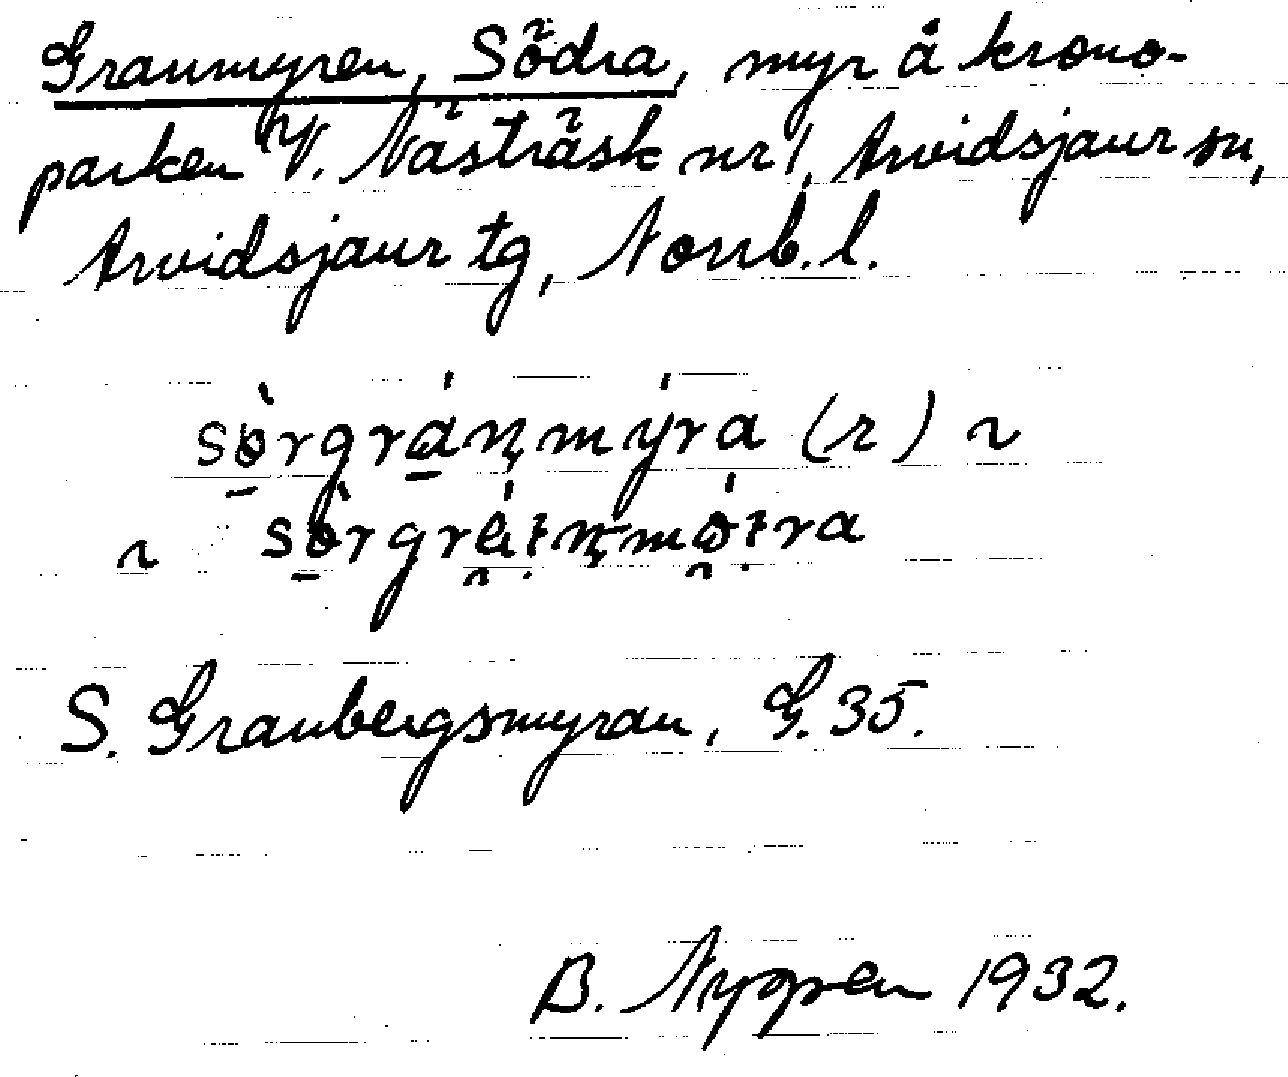 Granmyren, Södra, myr å krono-
parken V. Nästräsk nr 1, Arvidsjaur sn,
Arvidsjaur tg, Norrb. l.
sò̱rgrá̱n̥mýra (r) ~
~
S. Granbergsmyran, G. 35.
B. Nygren 1932.